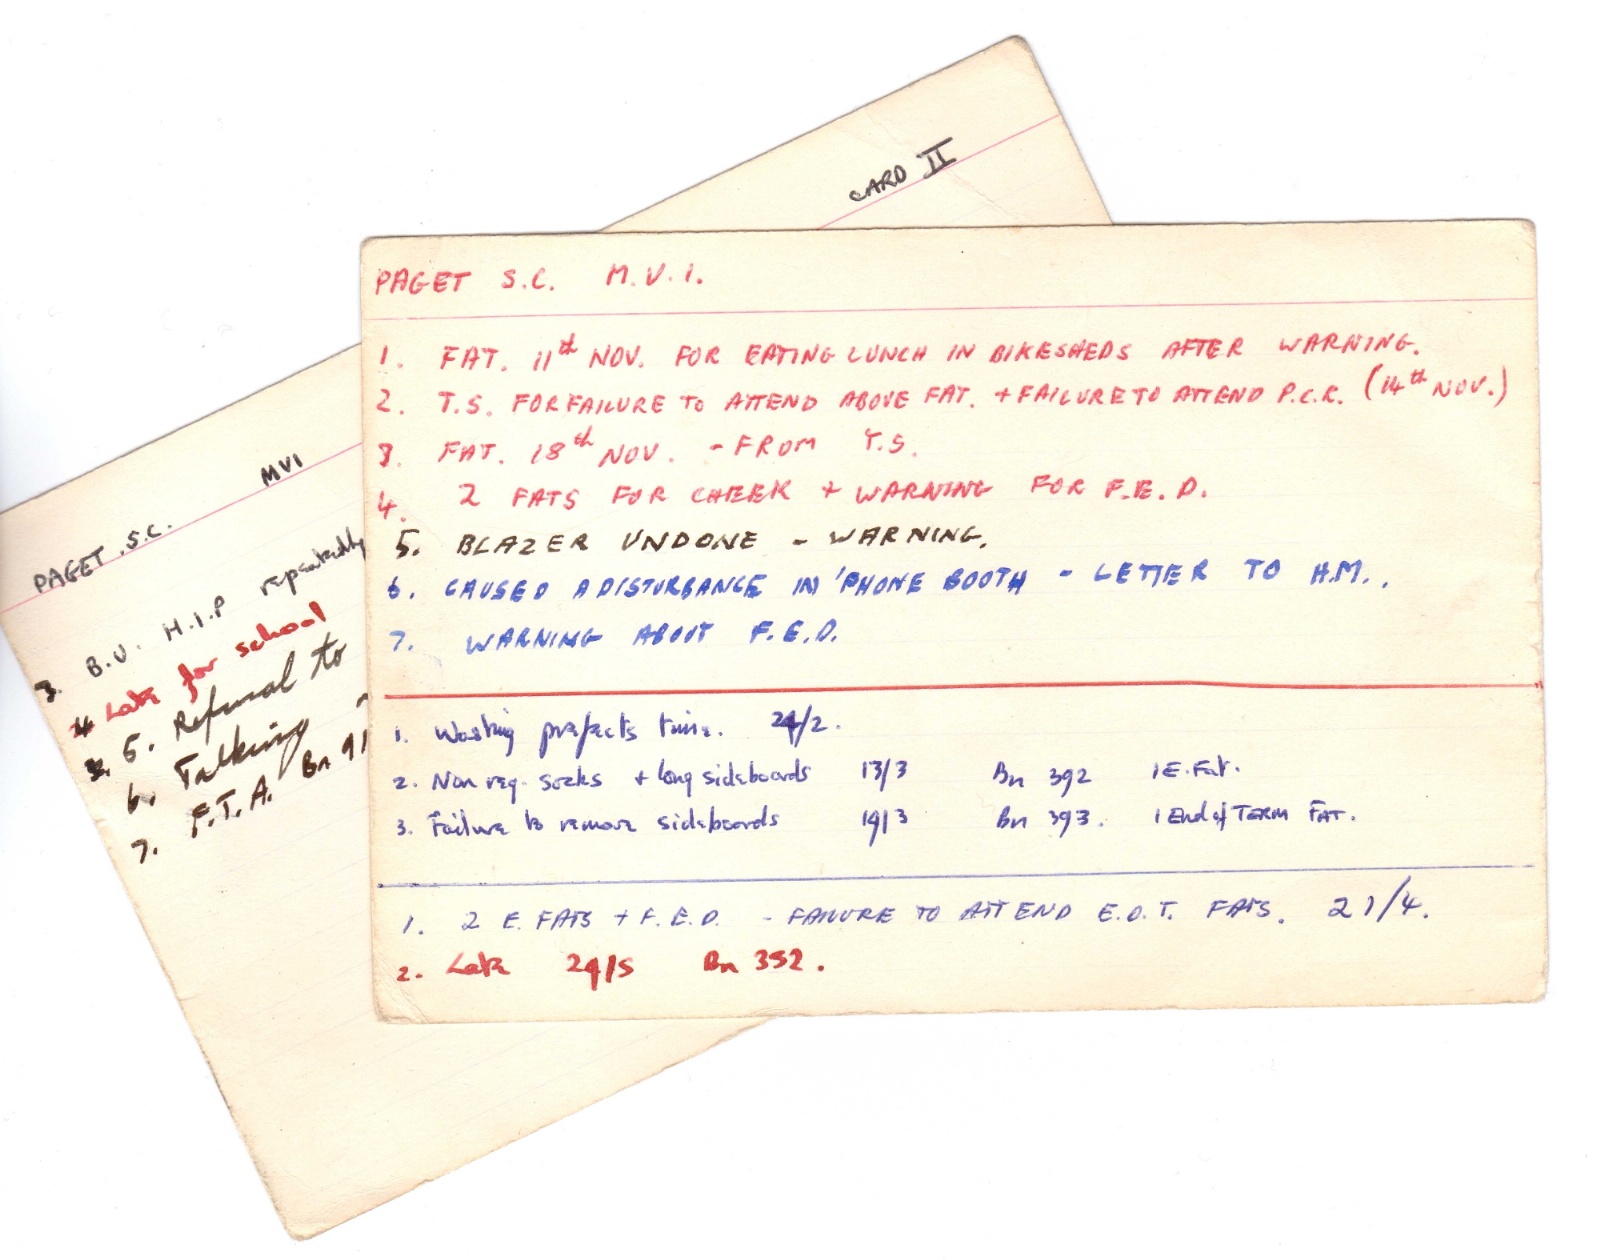 CARD II
PAGET S.C. MVI
3. B.U. H.I.P repeatedly
4 Late for school
5. Refusal to
6. Talking
7. F.T.A. Bn 91
PAGET S.C. M.V.I.
1. FAT. 11th NOV. FOR EATING LUNCH IN BIKESHEDS AFTER WARNING.
2. T.S. FOR FAILURE TO ATTEND ABOVE FAT. + FAILURE TO ATTEND P.C.R. (14th NOV.)
3. FAT. 18th NOV. - FROM T.S.
4. 2 FATS FOR CHEEK + WARNING FOR F.E.D.
5. BLAZER UNDONE - WARNING.
6. CAUSED A DISTURBANCE IN 'PHONE BOOTH - LETTER TO H.M..
7. WARNING ABOUT F.E.D.
1. Wasting prefects time. 24/2.
2. Non reg. socks + long sideboards 13/3 Bn 392 1 E. Fat.
3. Failure to remove sideboards 19/3 Bn 393. 1 End of TERM FAT.
1. 2 E. FATS + F.E.D. - FAILURE TO ATTEND E.O.T. FATS. 21/4.
2. Late 29/5 Bn 352.